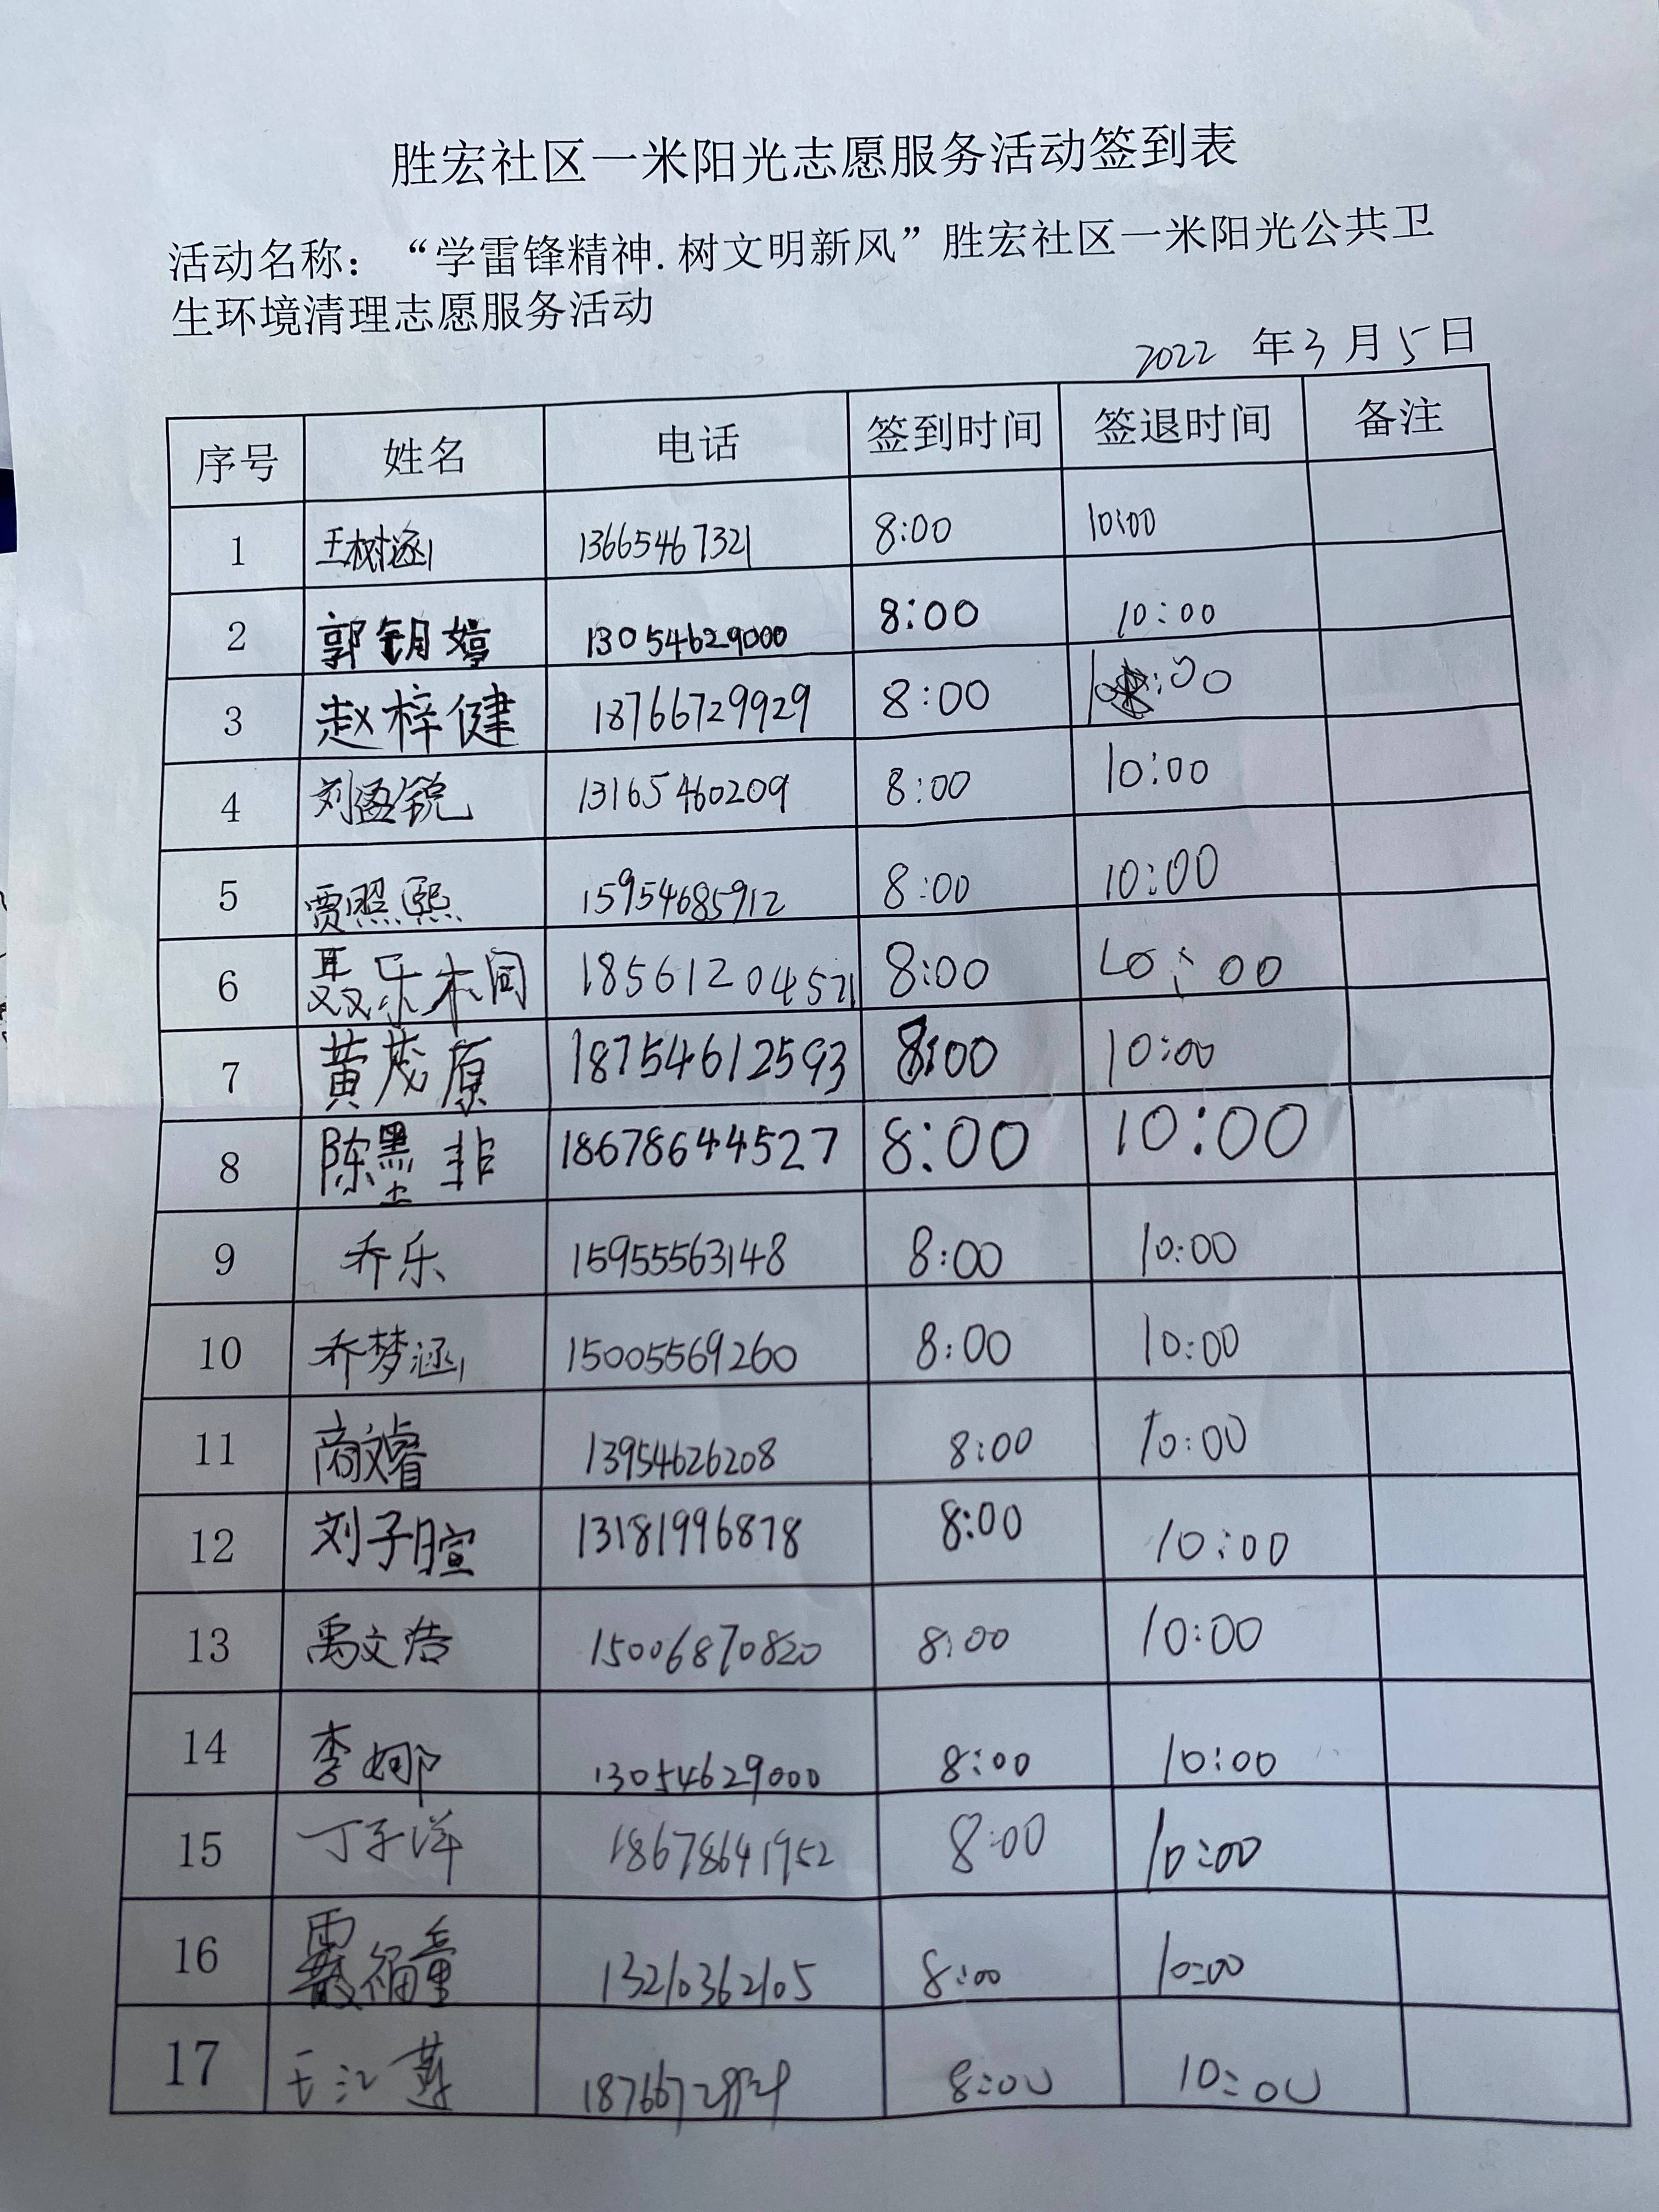 胜宏社区一米阳光志愿服务活动签到表
活动名称：“学雷锋精神.树文明新风”胜宏社区一米阳光公共卫
生环境清理志愿服务活动
2022 年3月5日
序号 姓名 电话 签到时间 签退时间 备注
1 王树涵 13665467321 8:00 10:00
2 郭钥婷 13054629000 8:00 10:00
3 赵梓健 18766729929 8:00 10:00
4 刘盈锐 13165460209 8:00 10:00
5 贾照熙 15954685912 8:00 10:00
6 聂乐桐 18561204521 8:00 10:00
7 黄茂原 18754612593 8:00 10:00
8 陈墨非 18678644527 8:00 10:00
9 乔乐 15955563148 8:00 10:00
10 乔梦涵 15005569260 8:00 10:00
11 商文睿 13954626208 8:00 10:00
12 刘子暄 13181996878 8:00 10:00
13 禹文浩 15006870820 8:00 10:00
14 李娜 13054629000 8:00 10:00
15 丁子洋 18678641952 8:00 10:00
16 福童 13210362105 8:00 10:00
17 王江燕 8:00 10:00